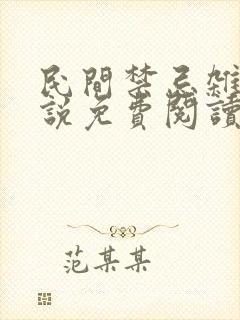 民間禁忌雜
說免費閱讀
范某某